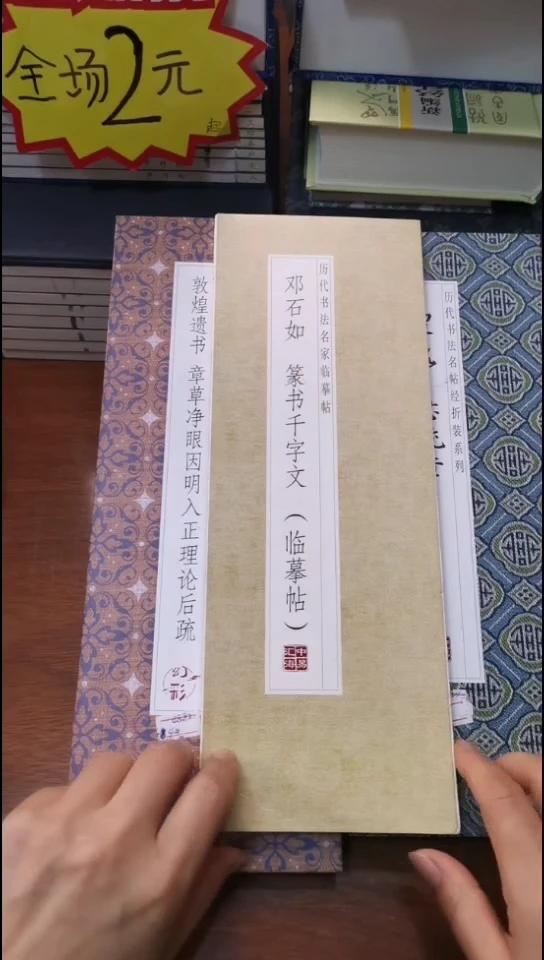 全场2元
起
历代书法名家临摹帖
邓石如 篆书千字文（临摹帖）
中易
汇海
敦煌遗书 章草净眼因明入正理论后疏
幻彩
历代书法名帖经折装系列